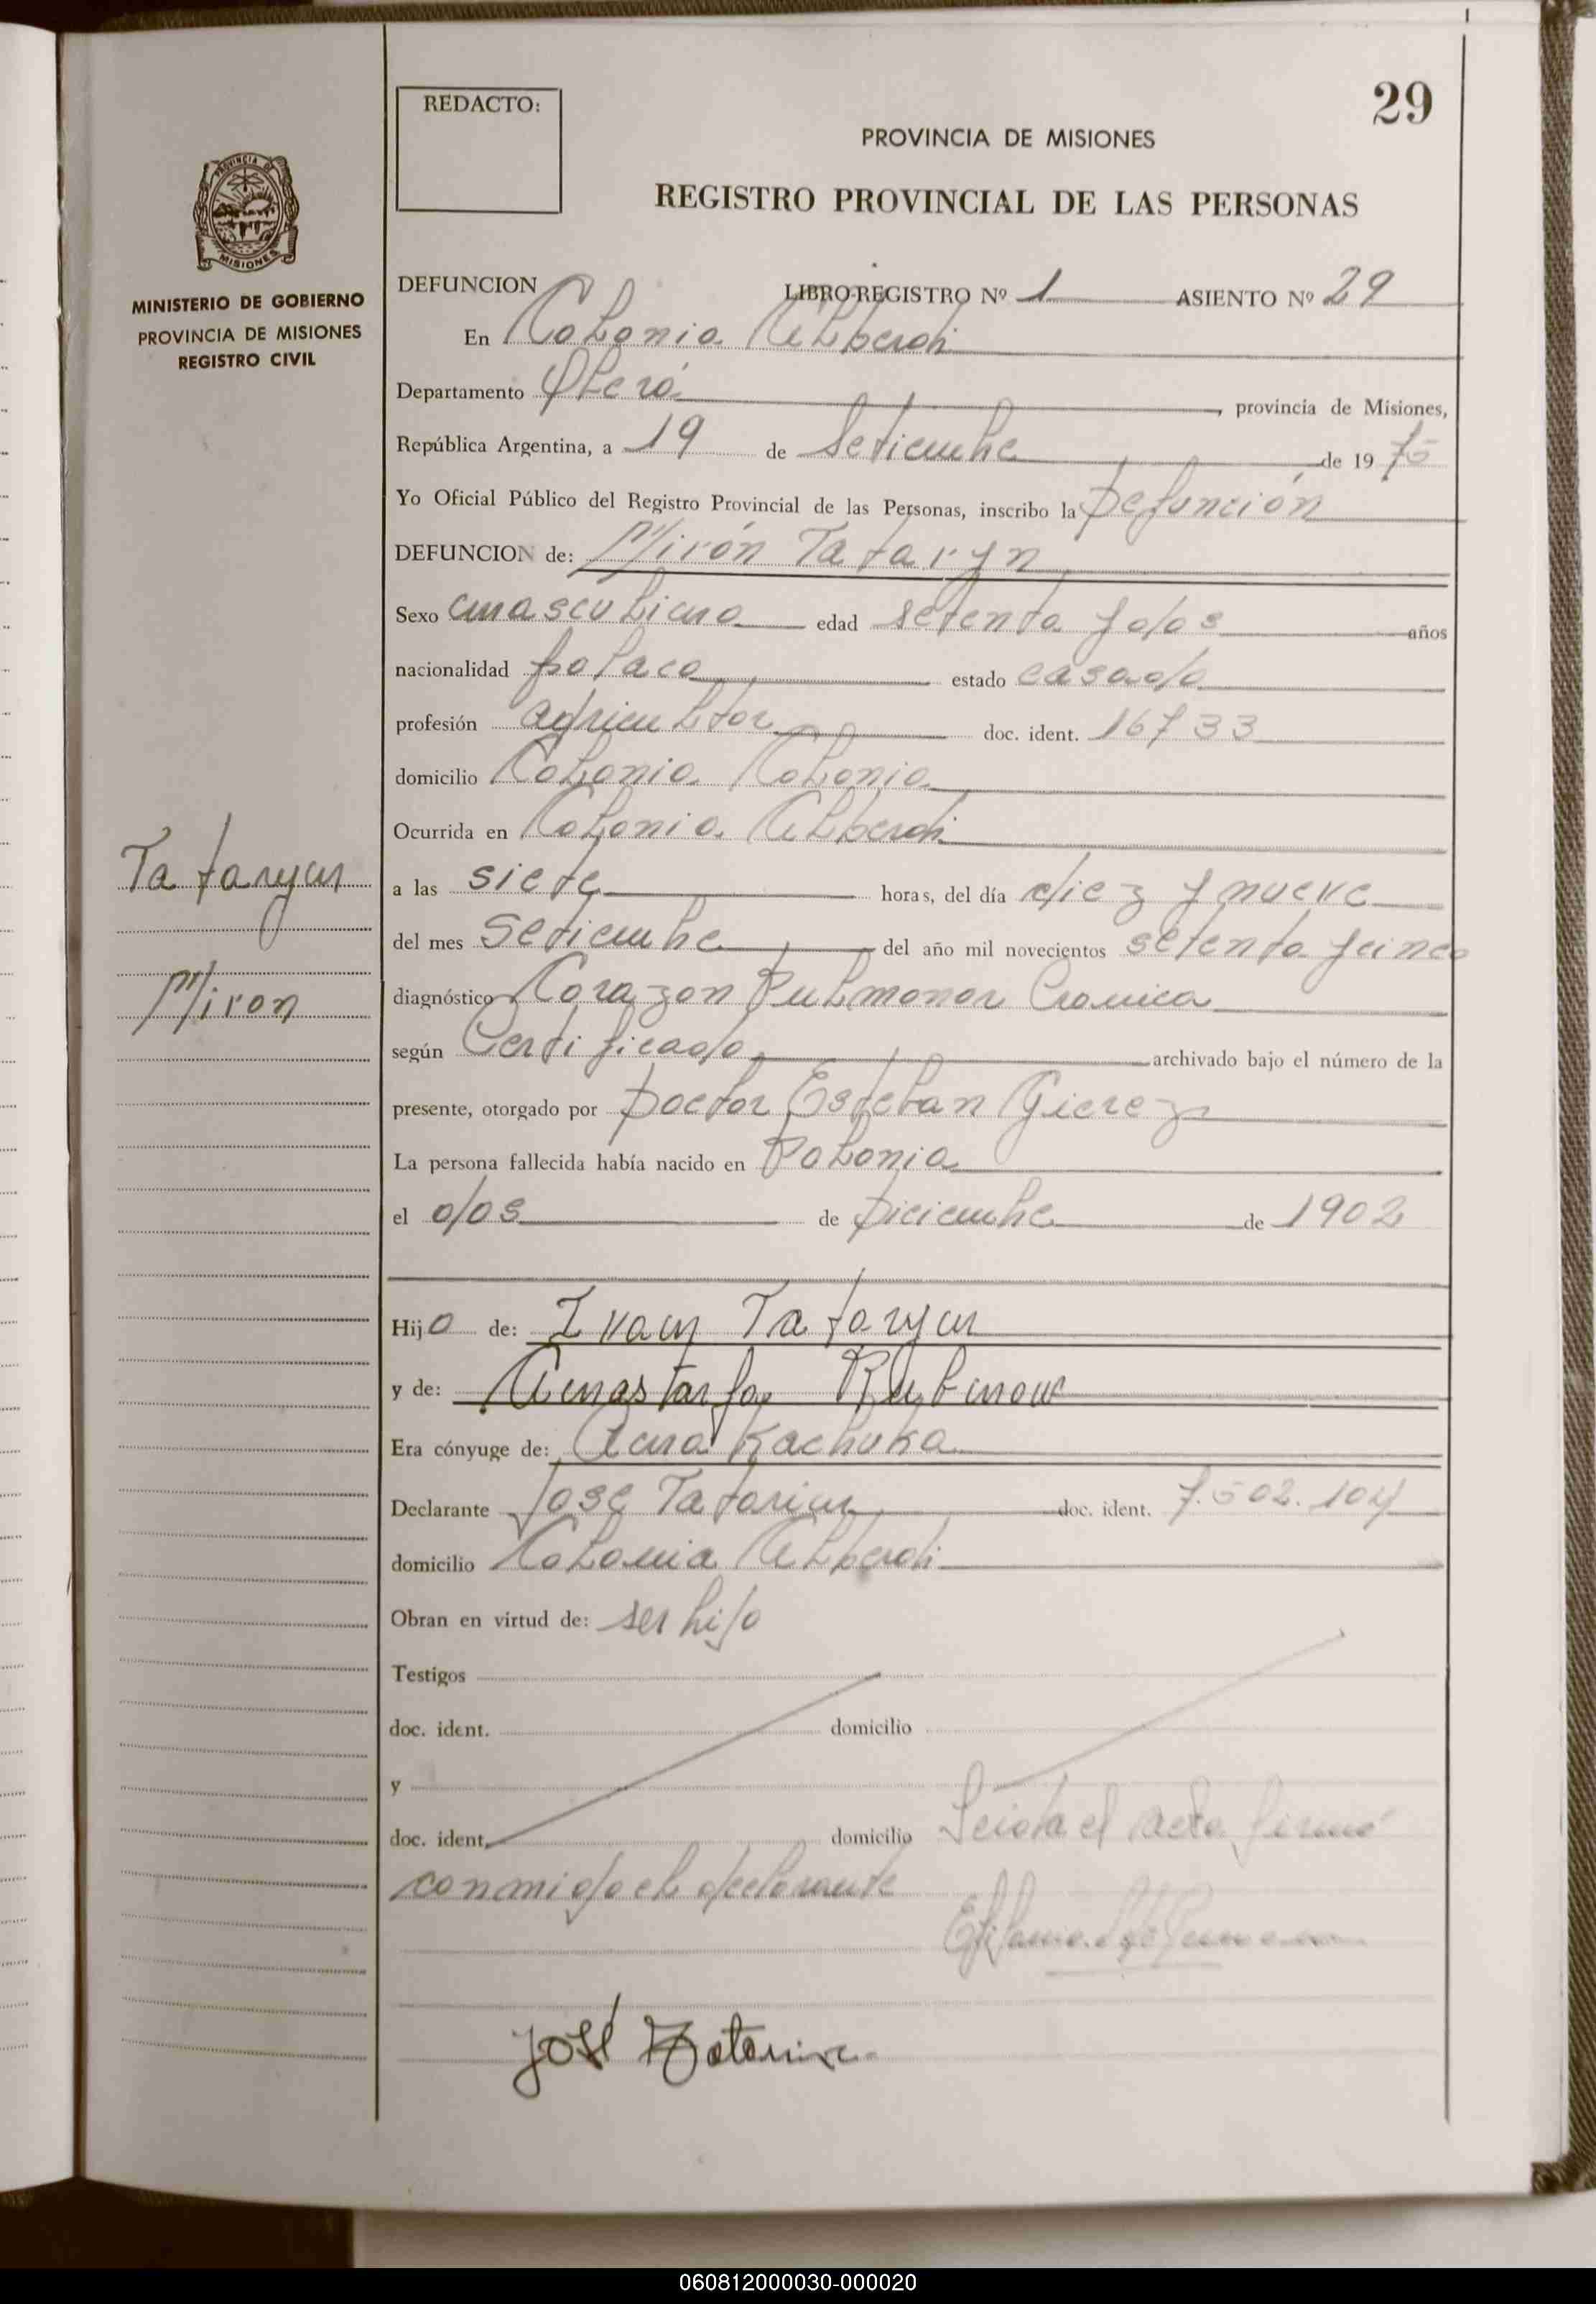 29
REDACTO:
PROVINCIA DE MISIONES
REGISTRO PROVINCIAL DE LAS PERSONAS
PROVINCIA DE
MISIONES
MINISTERIO DE GOBIERNO
PROVINCIA DE MISIONES
REGISTRO CIVIL
DEFUNCION LIBRO-REGISTRO Nº 1 ASIENTO Nº 29
En Colonia Alberdi
Departamento Oberá, provincia de Misiones,
República Argentina, a 19 de Setiembre de 1975
Yo Oficial Público del Registro Provincial de las Personas, inscribo la Defunción
DEFUNCION de: Mirón Tataryn
Sexo masculino edad setenta y dos años
nacionalidad polaco estado casado
profesión agricultor doc. ident. 16733
domicilio Colonia Colonia
Ocurrida en Colonia Alberdi
Tataryn
a las siete horas, del día diez y nueve
del mes Setiembre del año mil novecientos setenta y cinco
Miron
diagnóstico Corazon Pulmonar Cronica
según Certificado archivado bajo el número de la
presente, otorgado por Doctor Esteban Gierez
La persona fallecida había nacido en Polonia
el dos de Diciembre de 1902
Hijo de: Ivan Tataryn
y de: Anastasia
Era cónyuge de: Ana Kachuka
Declarante José Tatarin doc. ident. 7.502.104
domicilio Colonia Alberdi
Obran en virtud de: ser hijo
Testigos
doc. ident. domicilio
y
doc. ident. domicilio Leida el acta firmó
conmigo el declarante
José
060812000030-000020